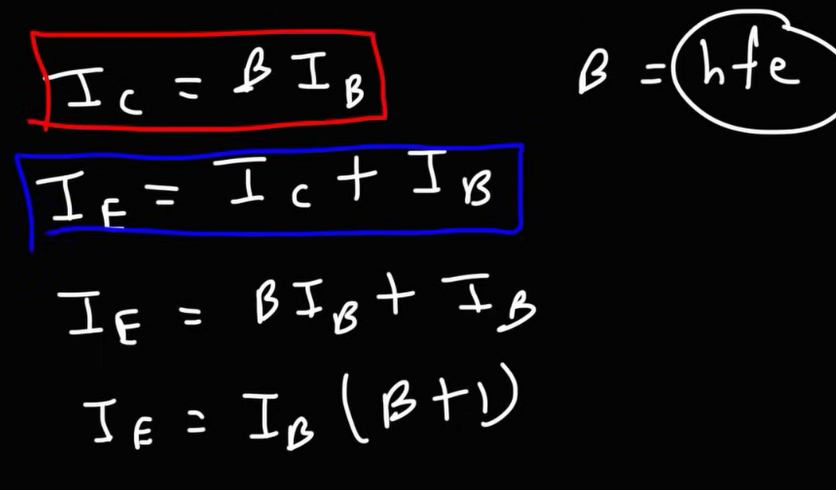 I_C = β I_B
β = hfe
I_E = I_C + I_B
I_E = β I_B + I_B
I_E = I_B (β + 1)